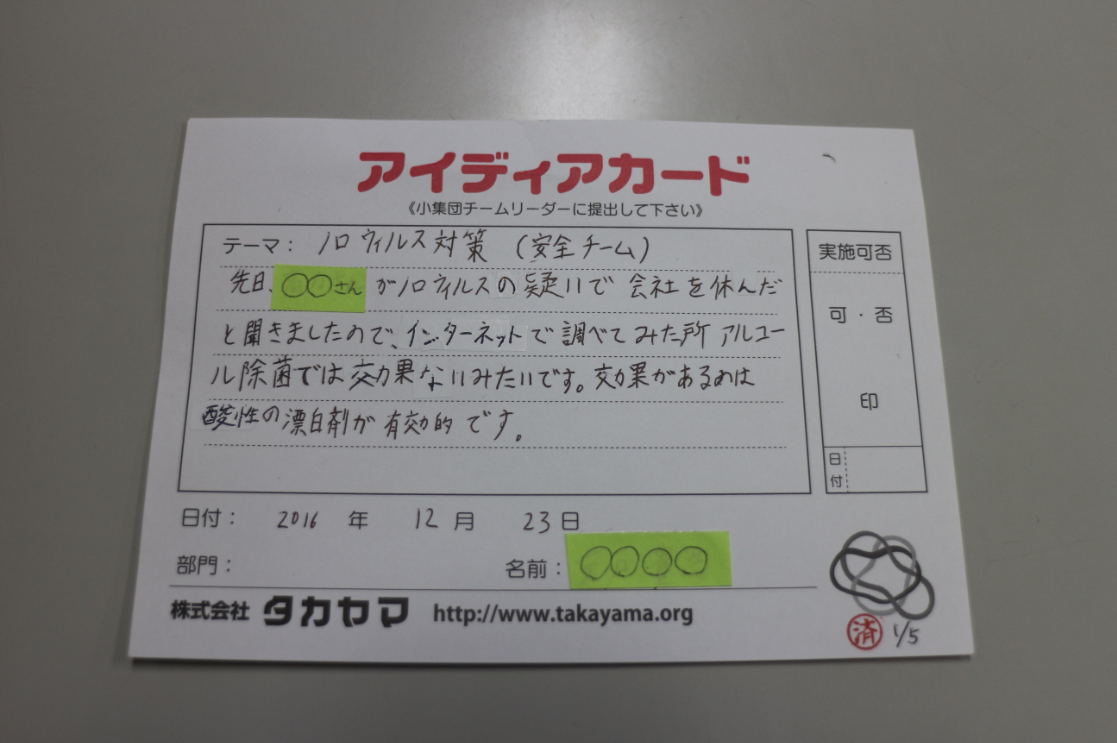 アイディアカード
《小集団チームリーダーに提出して下さい》
テーマ： ノロウィルス対策 (安全チーム)
先日、〇〇さんがノロウィルスの疑いで会社を休んだ
と聞きましたので、インターネットで調べてみた所アルコー
ル除菌では効果ないみたいです。効果があるのは
酸性の漂白剤が有効的です。
実施可否
可・否
印
日付
日付： 2016 年 12 月 23 日
部門：
名前： 〇〇〇〇
株式会社 タカヤマ http://www.takayama.org
済 1/5